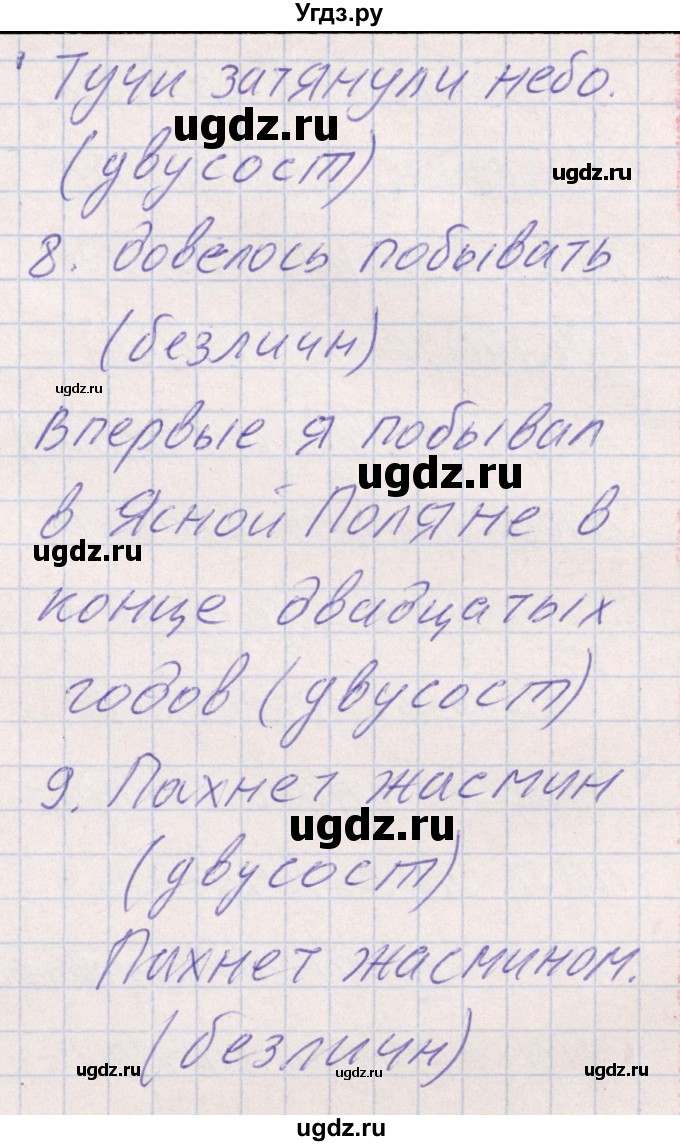 Угдз.ру
Тучи затянули небо.
ugdz.ru
(двусост)
ugdz.ru
8. довелось побывать
(безличн)
ugdz.ru
Впервые я побывал
ugdz.ru
в Ясной Поляне в
ugdz.ru
конце двадцатых
годов (двусост)
9. Пахнет жасмин
ugdz.ru
(двусост)
Пахнет жасмином.
(безличн)
ugdz.ru
ugdz.ru
ugdz.ru
ugdz.ru